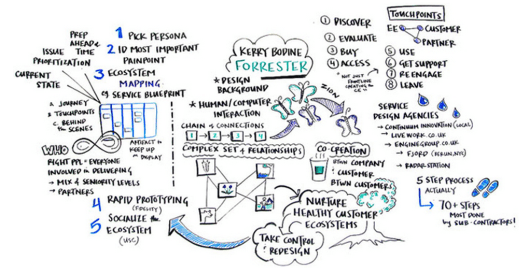 PREP
AHEAD &
TIME
ISSUE
PRIORITIZATION
CURRENT
STATE
1 PICK PERSONA
2 ID MOST IMPORTANT
PAINPOINT
3 ECOSYSTEM
MAPPING
SERVICE BLUEPRINT
JOURNEY
TOUCHPOINTS
BEHIND the
SCENES
ARTIFACT to
KEEP UP
DISPLAY
WHO
RIGHT PPL - EVERYONE
INVOLVED in DELIVERING
→ MIX of SENIORITY LEVELS
→ PARTNERS
4 RAPID PROTOTYPING
(FIDELITY)
5 SOCIALIZE the
ECOSYSTEM
KERRY BODINE
FORRESTER
* DESIGN
BACKGROUND
* HUMAN/COMPUTER
INTERACTION
CHAIN of CONNECTIONS
1 → 2 → 3 → 4
COMPLEX SET of RELATIONSHIPS
CO-CREATION
BTWN COMPANY
& CUSTOMER
BTWN CUSTOMERS
NURTURE
HEALTHY CUSTOMER
ECOSYSTEMS
TAKE CONTROL
& REDESIGN
1 DISCOVER
2 EVALUATE
3 BUY
4 ACCESS
TOUCHPOINTS
EE
CUSTOMER
PARTNER
5 USE
6 GET SUPPORT
7 RE ENGAGE
8 LEAVE
* NOT JUST
FRONTLINE
CREATING the
SERVICE
DESIGN AGENCIES
→ CONTINUUM INNOVATION (LOCAL)
→ LIVE WORK.CO.UK
→ ENGINEGROUP.CO.UK
→ RADARSTATION
5 STEP PROCESS
ACTUALLY
70+ STEPS
MOST DONE
by SUB-CONTRACTORS!